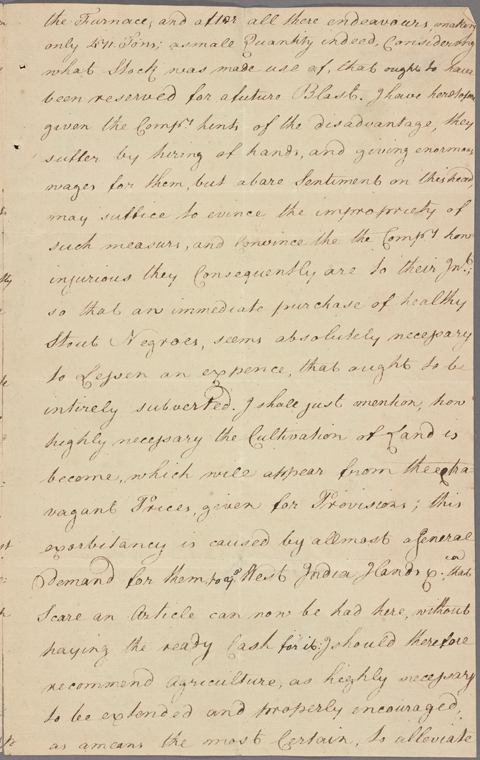 the Furnace, and after all there endeavours, making
only 471 Tons; a smale Quantity indeed, Considering
what Stock was made use of, that ought to have
been reserved for a future Blast. I have heretofore
given the Comp.y hints of the disadvantage, they
suffer by hiring of hands, and giving enormous
wages for them, but a bare Sentiment on this head,
may suffice to evince the impropriety of
such measure, and Convince the the Comp.y how
injurious they Consequently are to their Int.;
so that an immediate purchase of healthy
Stout Negroes, seems absolutely necessary
to Lessen an expence, that ought to be
intirely subverted. I shale just mention, how
highly necessary the Cultivation of Land is
become, which wile appear from the extra
vagant Prices, given for Provisions; this
exorbitancy is caused by allmost a General
Demand for them, to y.e West India Ilands &.ca that
Scare an Article can now be had here, without
paying the ready Cash for it: I should therefore
recommend Agriculture, as highly necessary
to be extended and properly encouraged,
as a means the most Certain, to alleviate